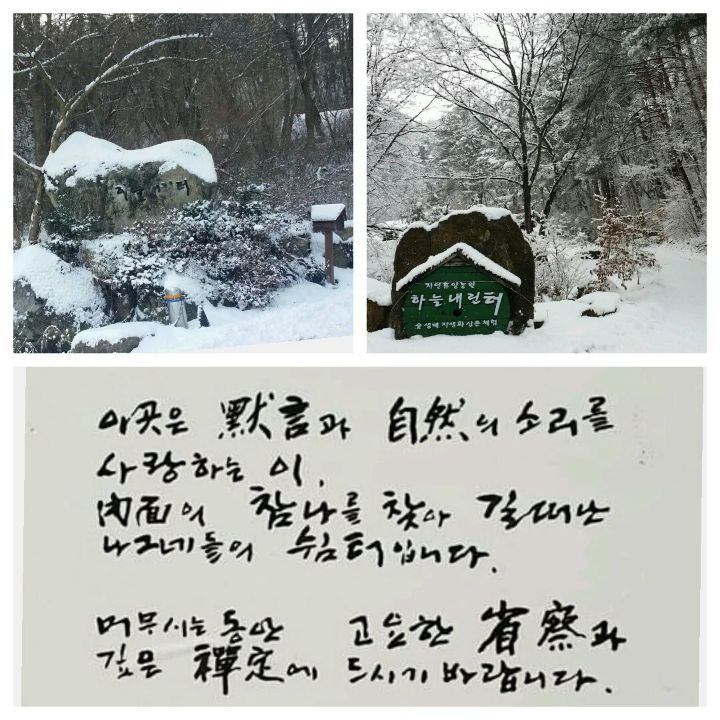 자연휴양농원
하늘내린터
숲생태 자생화 산촌체험
이곳은 默言과 自然의 소리를
사랑하는 이,
内面의 참나를 찾아 길떠난
나그네들의 쉼터입니다.
머무시는 동안 고요한 省察과
깊은 禪定에 드시기 바랍니다.